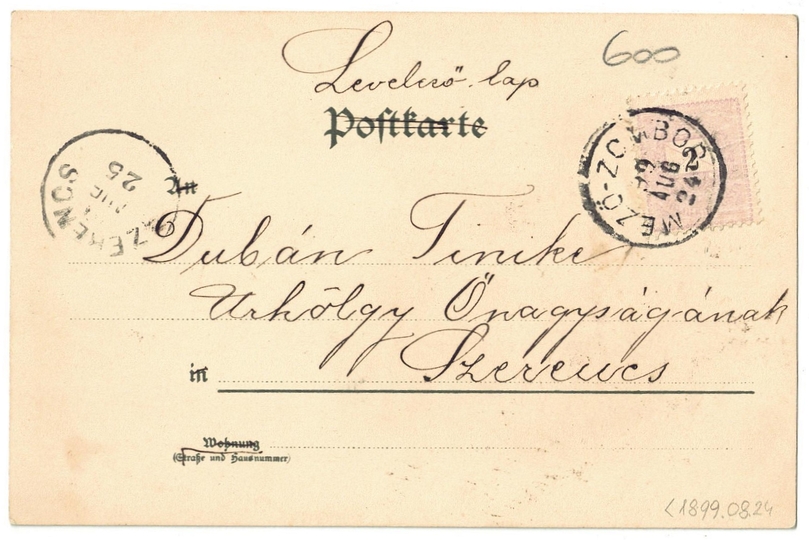 600
Levelező lap
Postkarte
MEZŐ-ZOMBOR
AUG 24
SZERENCS
25
An
Dubán Tinike
Úrhölgy Őnagyságának
in Szerencs
Wohnung
(Straße und Hausnummer)
<1899.08.24